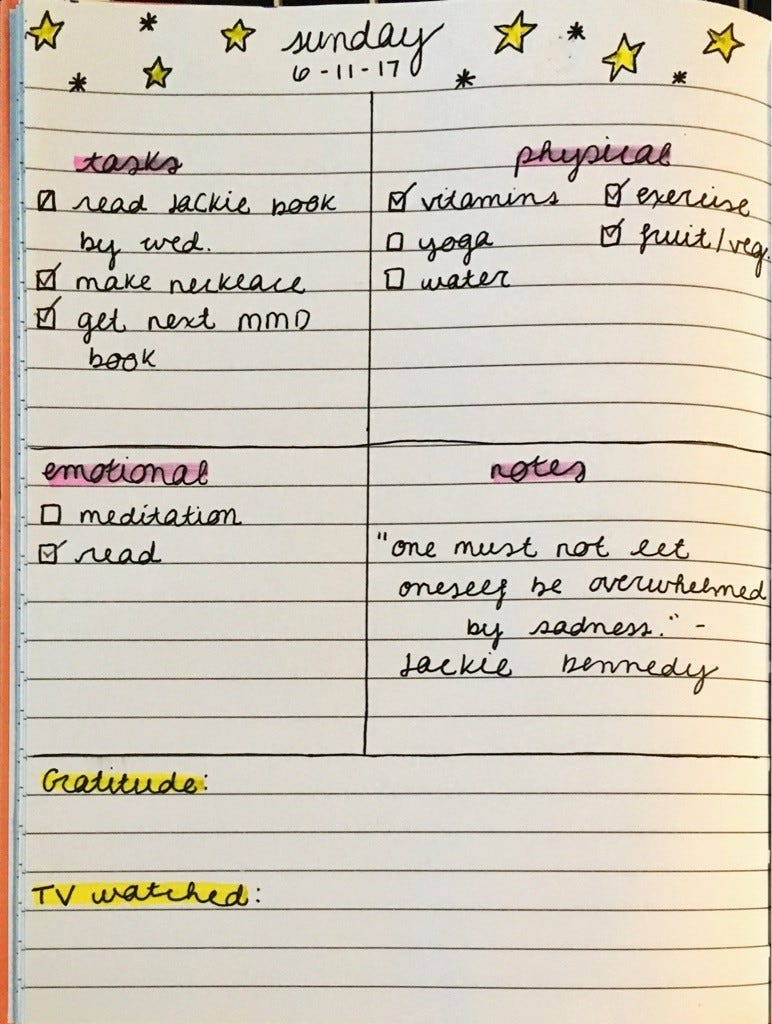 sunday
6-11-17
tasks
read Jackie book
by wed.
make necklace
get next MMD
book
physical
vitamins
yoga
water
exercise
fruit/veg.
emotional
meditation
read
notes
"one must not let
oneself be overwhelmed
by sadness." -
Jackie Kennedy
Gratitude:
TV watched: